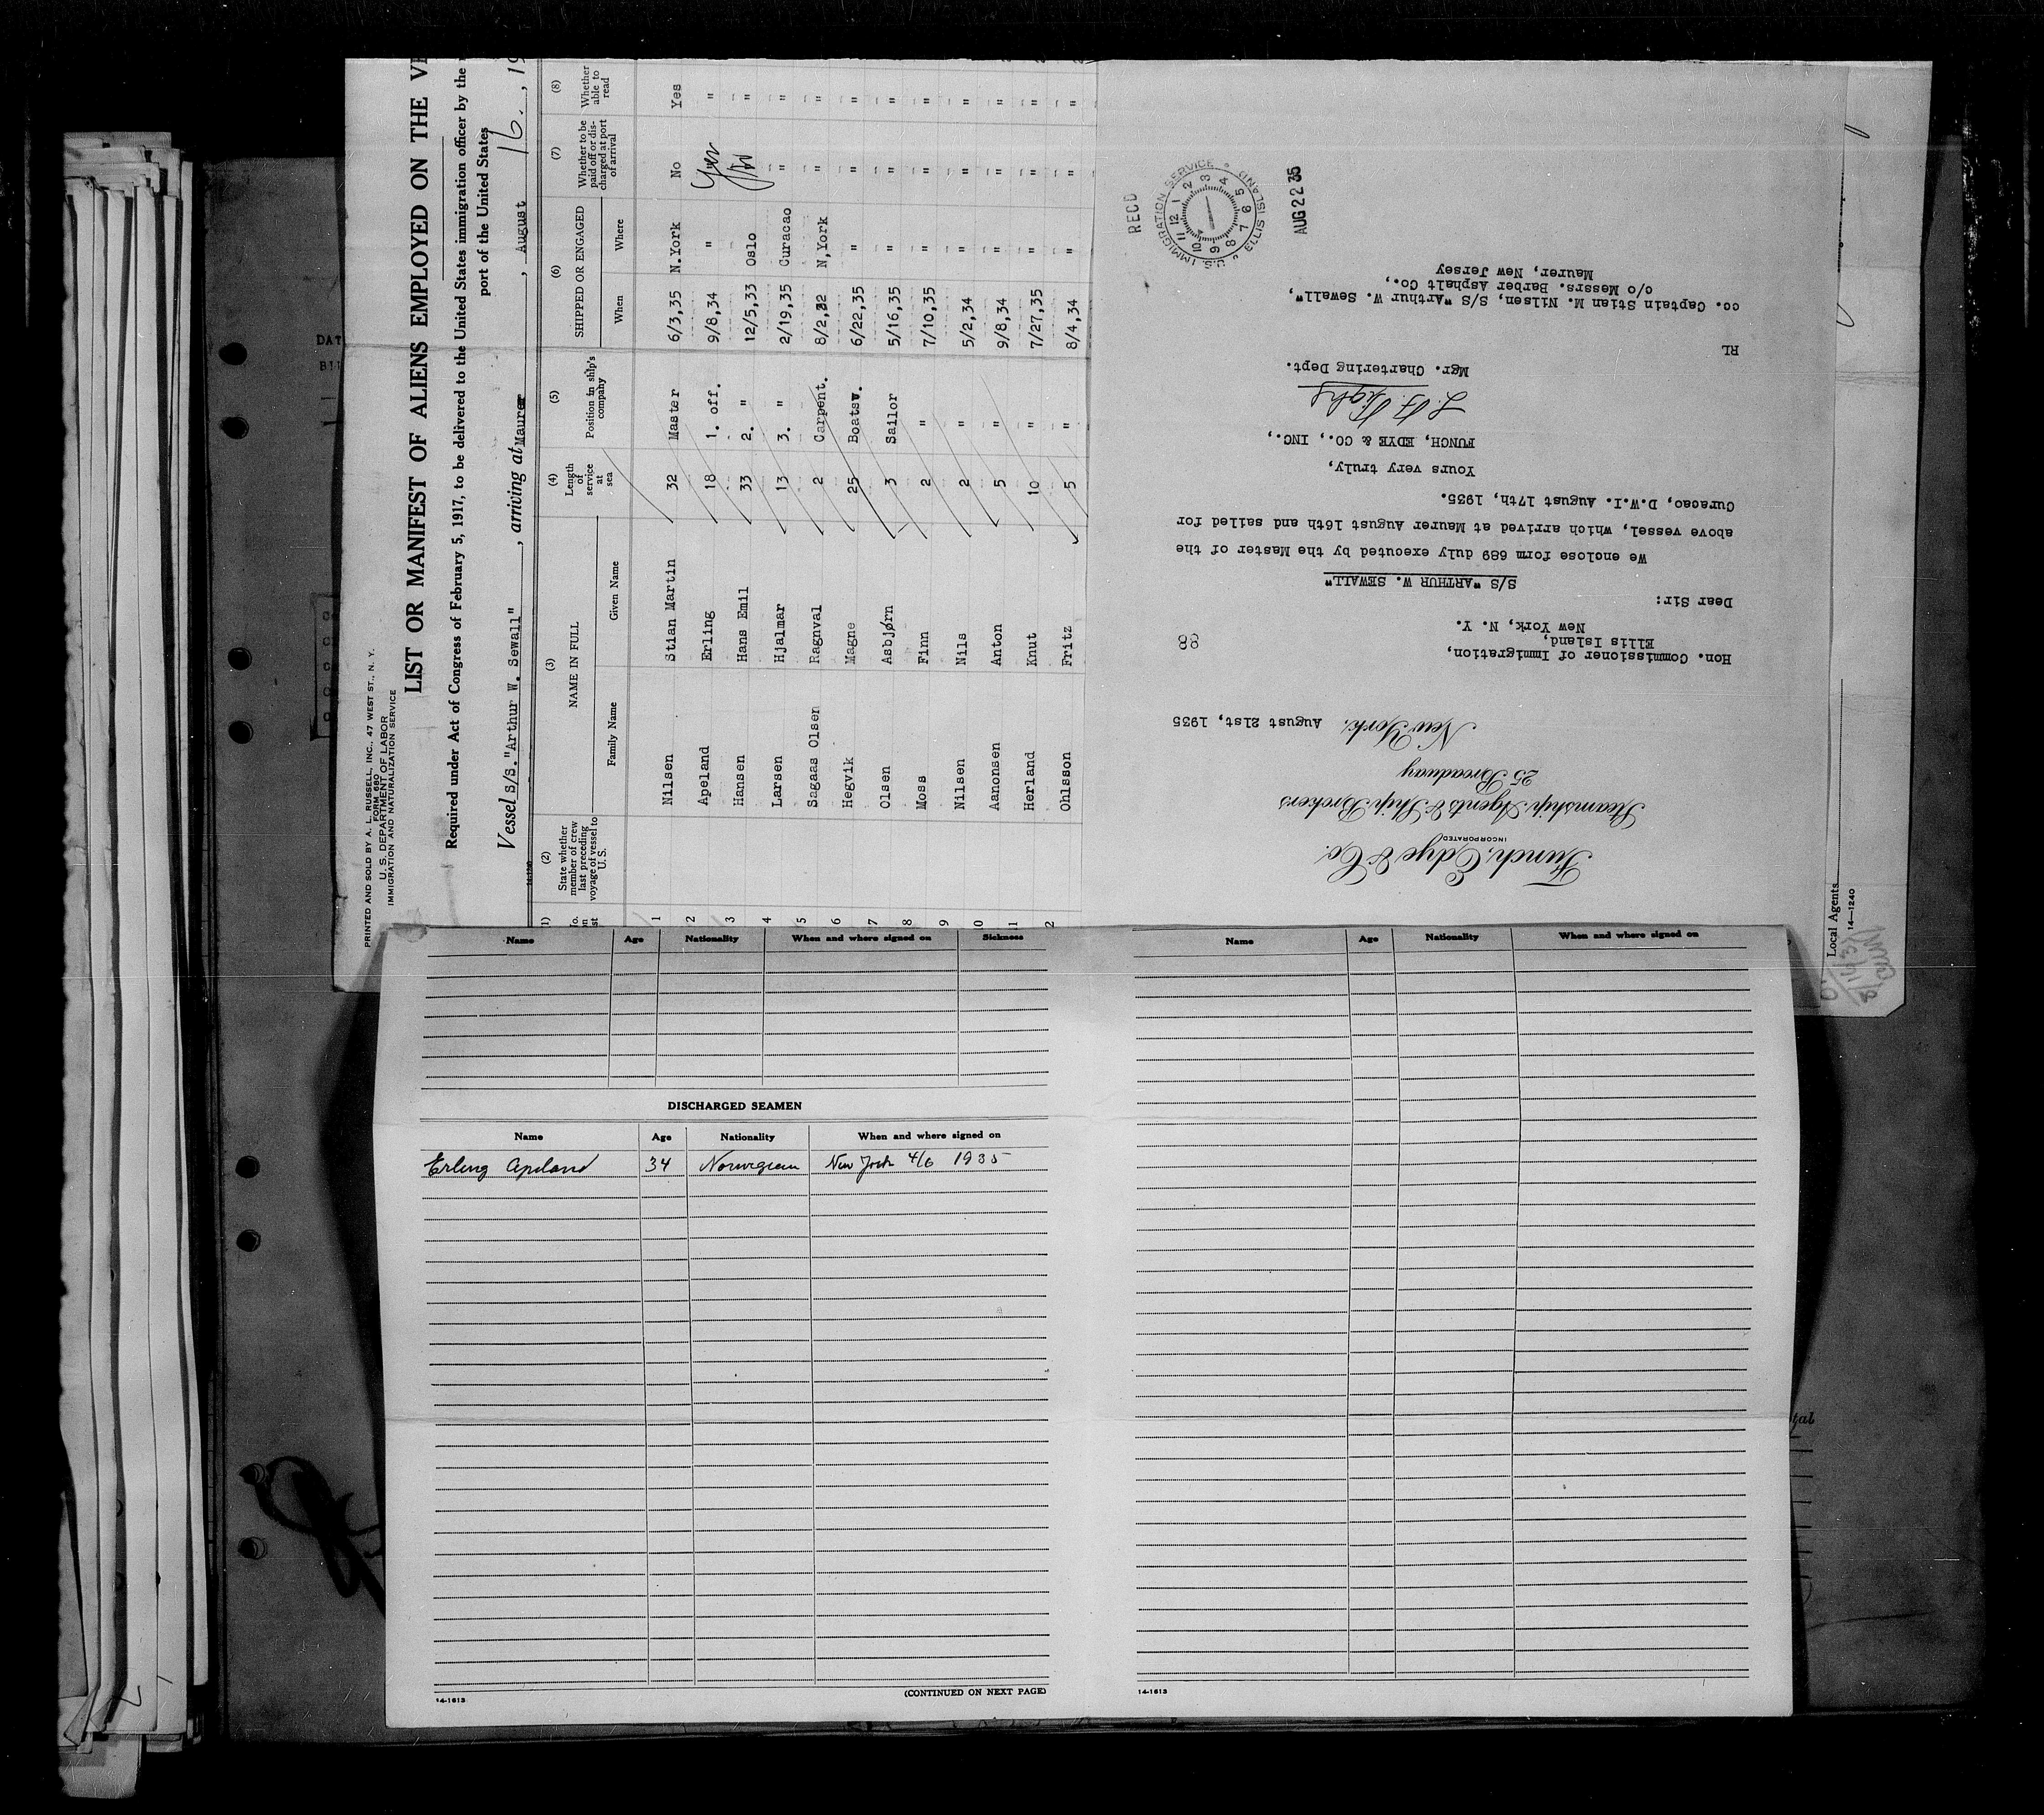 PRINTED AND SOLD BY A. L. RUSSELL, INC., 47 WEST ST., N. Y.
FORM 680
U. S. DEPARTMENT OF LABOR
IMMIGRATION AND NATURALIZATION SERVICE
LIST OR MANIFEST OF ALIENS EMPLOYED ON THE
Required under Act of Congress of February 5, 1917, to be delivered to the United States immigration officer by the
port of the United States
Vessel S/S. "Arthur W. Sewall", arriving at Maurer, August 16, 19
(2) State whether member of crew last preceding voyage of vessel to U. S.
(3) NAME IN FULL
Family Name Given Name
(4) Length of service at sea
(5) Position in ship's company
(6) SHIPPED OR ENGAGED
When Where
(7) Whether to be paid off or discharged at port of arrival
(8) Whether able to read
1 Nilsen Stian Martin 32 Master 6/3,35 N.York No Yes
2 Apeland Erling 18 1. off. 9/8,34 " Yes "
3 Hansen Hans Emil 33 2. " 12/5,33 Oslo No "
4 Larsen Hjalmar 13 3. " 2/19,35 Curacao " "
5 Sagaas Olsen Ragnval 2 Carpent. 8/2,32 N,York " "
6 Hegvik Magne 25 Boatsv. 6/22,35 " " "
7 Olsen Asbjørn 3 Sailor 5/16,35 " " "
8 Moss Finn 2 " 7/10,35 " " "
9 Nilsen Nils 2 " 5/2,34 " " "
10 Aanonsen Anton 5 " 9/8,34 " " "
11 Herland Knut 10 " 7/27,35 " " "
12 Ohlsson Fritz 5 " 8/4,34 " " "
Funch, Edye & Co.
INCORPORATED
Steamship Agents & Ship Brokers
25 Broadway
New York, August 21st, 1935
Hon. Commissioner of Immigration,
Ellis Island,
New York, N. Y.
88
Dear Sir:
S/S "ARTHUR W. SEWALL"
We enclose form 689 duly executed by the Master of the
above vessel, which arrived at Maurer August 16th and sailed for
Curacao, D.W.I. August 17th, 1935.
Yours very truly,
FUNCH, EDYE & CO., INC.,
Mgr. Chartering Dept.
RL
co. Captain Stian M. Nilsen, S/S "Arthur W. Sewall",
c/o Messrs. Barber Asphalt Co.,
Maurer, New Jersey
RECD
U.S. IMMIGRATION SERVICE
ELLIS ISLAND
12 1 2 3 4 5 6 7 8 9 10 11
AUG 22 35
Local Agents
14—1240
Name Age Nationality When and where signed on Sickness
DISCHARGED SEAMEN
Name Age Nationality When and where signed on
Erling Apeland 34 Norwegian New York 4/6 1935
14-1613
(CONTINUED ON NEXT PAGE)
Name Age Nationality When and where signed on
14-1613